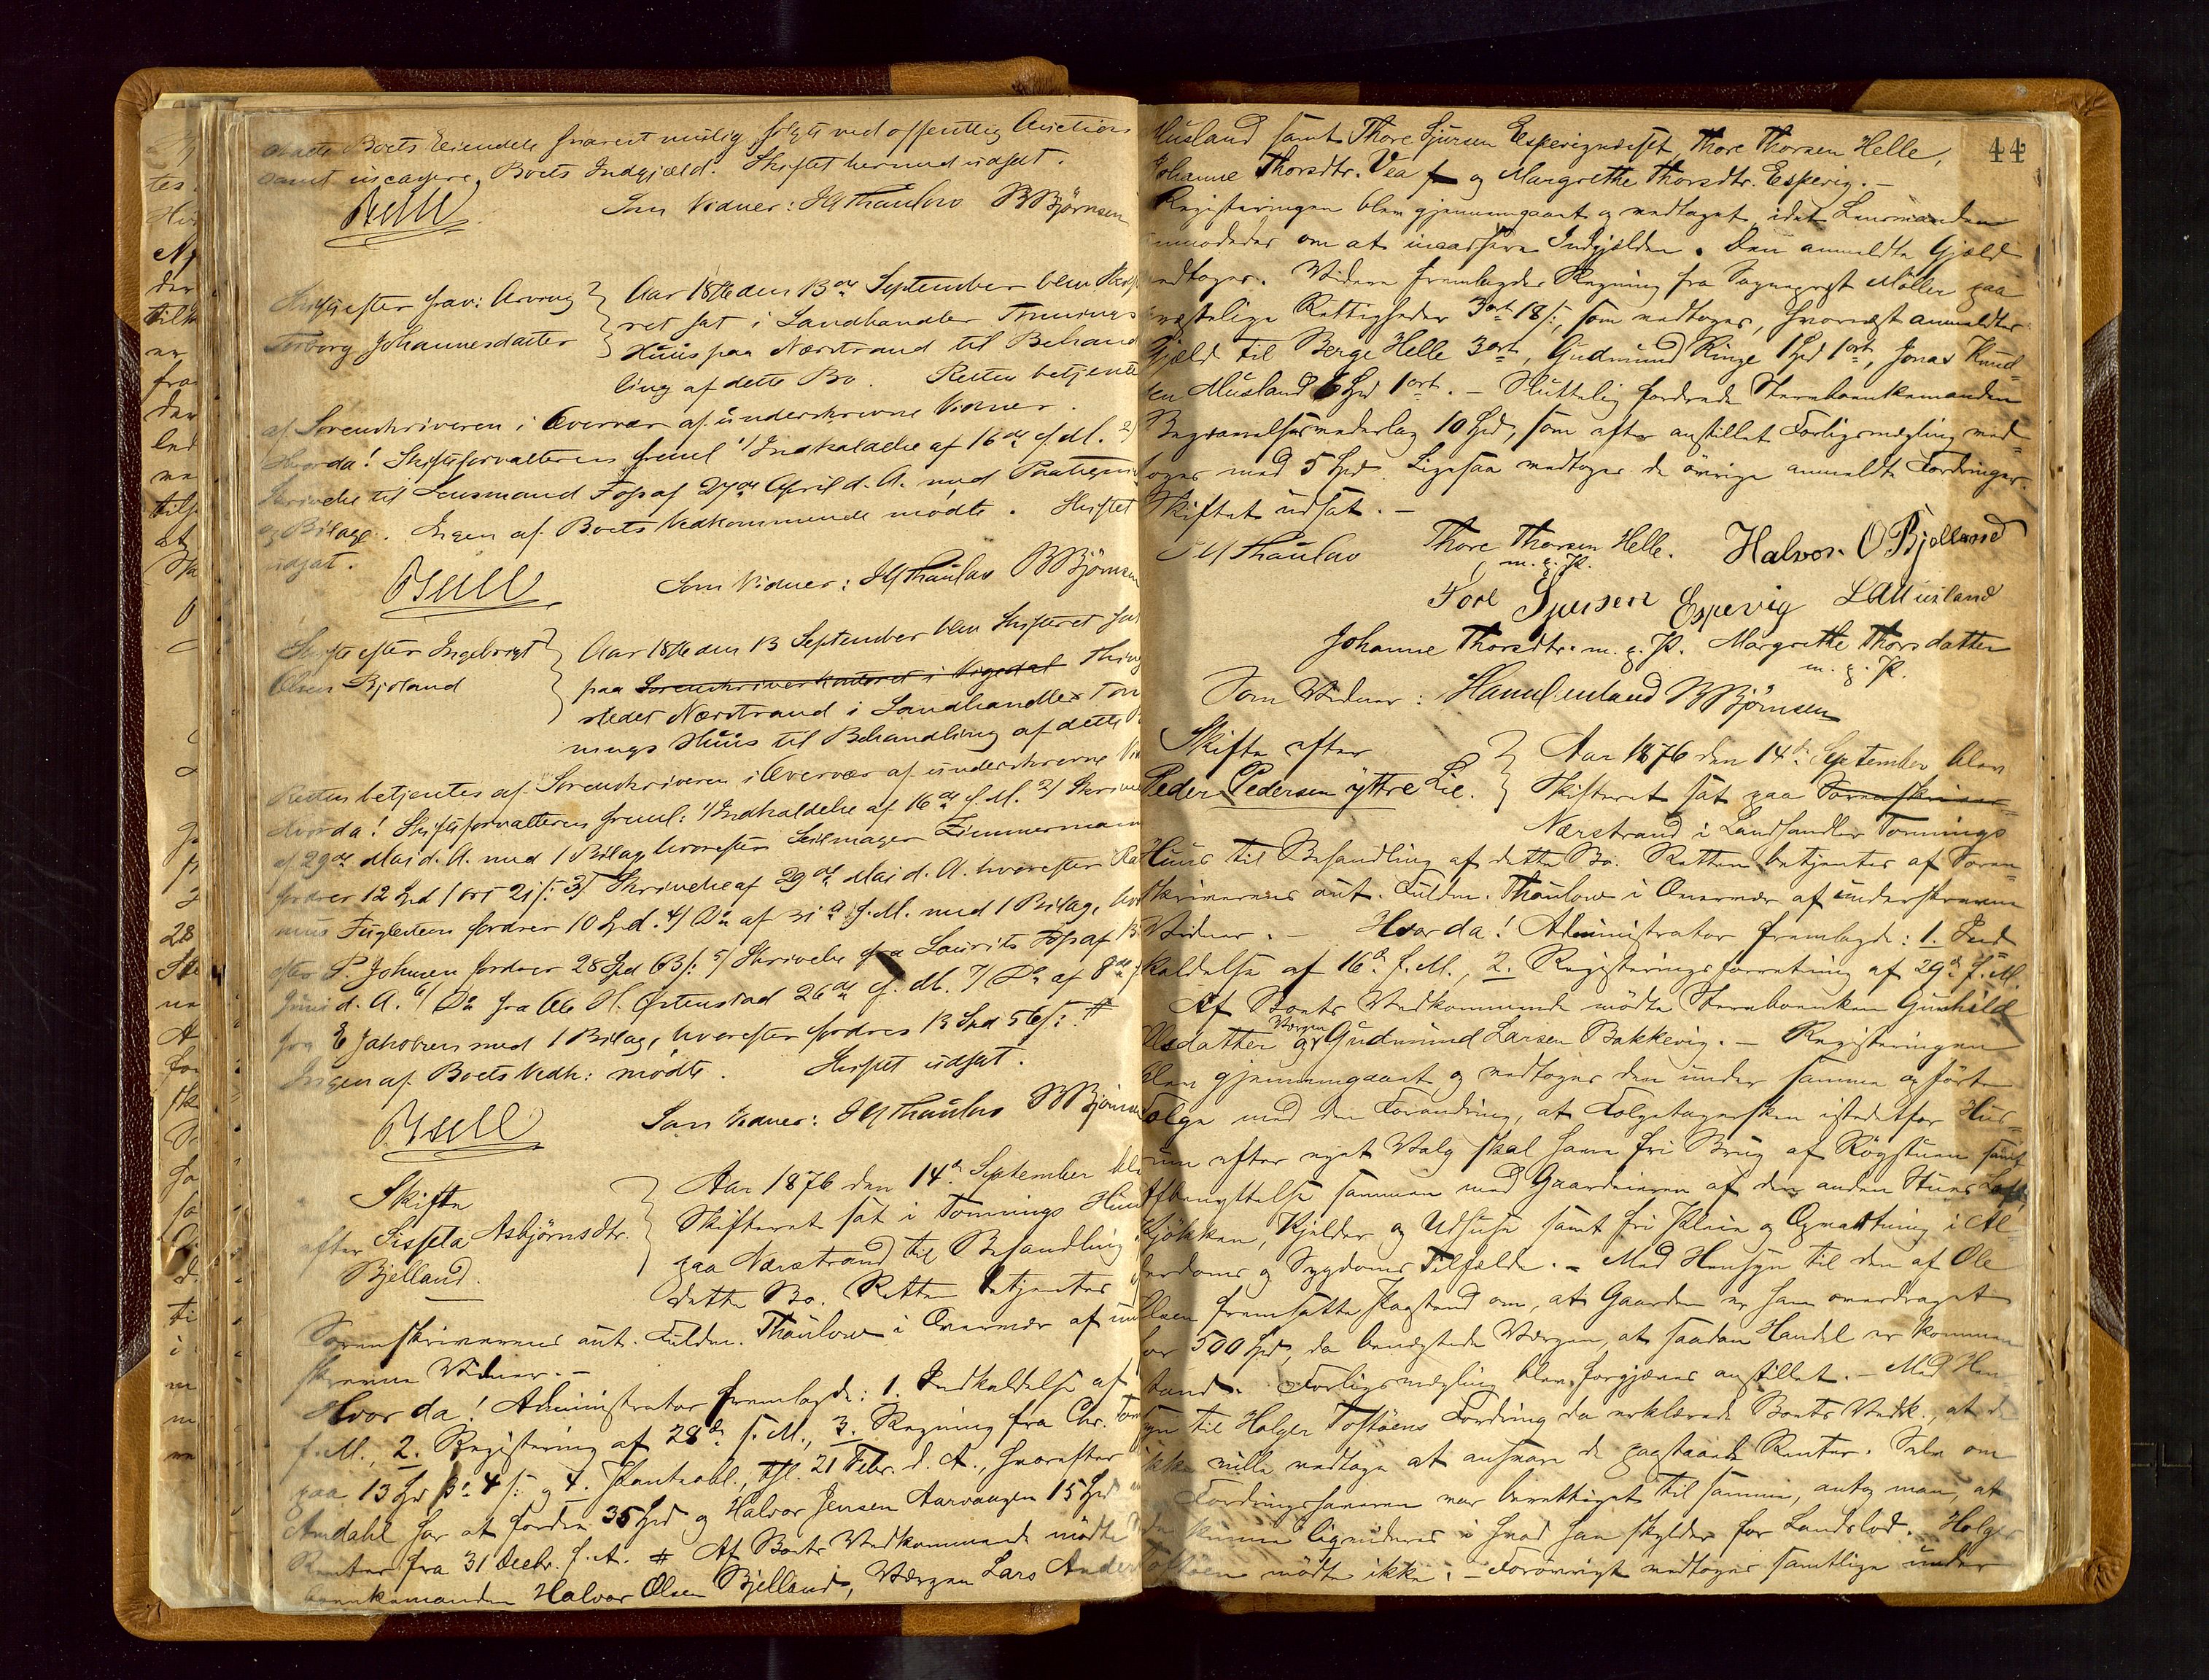 Boets Eiendele snarest mulig solgt ved offentlig Auction
samt incassere Boets Indgjæld. Skiftet hermed udsat.
Bull
Som Vidner: Thaulow BBjörnsen
Skifte efter frav: Arving
Torborg Johannesdatter
Aar 1876 den 13de September blev Skifte
ret sat i Landhandler Tønnings
Huus paa Nærstrand til Behand
ling af dette Bo. Retten betjent
af Sorenskriveren i Overvær af underskrevne Vidner.
Hvorda! Skifteforvalteren freml 1/ Indkaldelse af 16de f. M. 2/
Skrivelse til Lensmand Foss af 27de April d. A. med Paategn
og Bilage. Ingen af Boets Vedkommende mødte. Skiftet
udsat.
Bull
Som Vidner: Thaulow BBjörnsen
Skifte efter Ingebrigt
Olsen Bjoland
Aar 1876 den 13 September blev Skifteret sat
paa Sorenskriverkontoret i Vigedal Thing
stedet Nærstrand i Landhandler Tøn
nings Huus til Behandling af dette B
Retten betjentes af Sorenskriveren i Overvær af underskrevne Vi
Hvorda! Skifteforvalteren freml: 1/ Indkaldelse af 16de f. M. 2/ Skrive
af 29de Mai d. A. med 1 Bilag hvorefter Seilmager Zimmermann
fordrer 12 Spd 1 ort 21 s: 3/ Skrivelse af 29de Mai d. A. hvorefter Ra
mus Fuglesteen fordrer 10 Spd. 4/ Do af 31te f. M. med 1 Bilag, hvor
efter P. Johnsen fordrer 28 Spd 63 s: 5/ Skrivelse fra Laurits Foss af 13
Juni d. A. 6/ Do fra Ole H. Østenstad 26de f. M. 7/ Do af 8de
fra E Jakobsen med 1 Bilag, hvorefter fordres 13 Spd 56 s:.
Ingen af Boets Vedk: mødte. Skiftet udsat.
Bull
Som Vidner: Thaulow BBjörnsen
Skifte
efter Sissela Asbjørnsdtr.
Bjelland.
Aar 1876 den 14de September ble
Skifteret sat i Tønnings Huus
paa Nærstrand til Behandling
dette Bo. Retten betjentes
Sorenskriverens aut. Fuldm. Thaulow i Overvær af un
skrevne Vidner. -
Hvor da! Administrator fremlagde: 1. Indkaldelse af
f. M., 2. Registrering af 28de f. M., 3. Regning fra Chr. Tøn
paa 13 Spd 4 s: og 4. Panteobl., thl. 21 Febr. d. A., hvorefter
Amdahl har at fordre 35 Spd og Halvor Jensen Aarvaagen 15 Spd
Renter fra 31 Decbr. f. A. # Af Boets Vedkommende mødte
boenkemanden Halvor Olsen Bjelland, Værgen Lars Anders
44
Musland samt Thore Sjursen Thore Thorsen Helle,
Johanne Thorsdtr. Vea og Margrethe Thorsdtr. Espevig. -
Registeringen blev gjennemgaaet og vedtaget, idet Lensmanden
anmodedes om at incassere Indgjælden. Den anmeldte Gjæld
vedtoges. Videre fremlagdes Regning fra Sogneprest Møller paa
præstelige Rettigheder 3 ort 18 s:, som vedtoges, hvornæst anmeldtes
Gjæld til Berge Helle 3 ort, Gudmund Ringe 1 Spd 1 ort, Jonas Knud-
sen Musland 6 Spd 1 ort. - Sluttelig fordrede Stervboenkemanden
Begravelsesvederlag 10 Spd, som efter anstillet Forligsmægling ved-
toges med 5 Spd. Ligesaa vedtoges de øvrige anmeldte Fordringer.
Skiftet udsat. -
Thaulow Thore Thorsen Helle. Halvor. O Bjelland
m. p. P.
Tore Sjursen Espevig LAMusland
Johanne Thorsdtr. m. p. P. Margrethe Thorsdatter
m. p. P.
Som Vidner: BBjörnsen
Skifte efter
Peder Pedersen yttre Lie.
Aar 1876 den 14de September blev
Skifteret sat paa Sorenskriver
Nærstrand i Landhandler Tønnings
Huus til Behandling af dette Bo. Retten betjentes af Soren-
skriverens aut. Fuldm. Thaulow i Overvær af underskrevne
Vidner. - Hvor da! Administrator fremlagde: 1. Ind-
kaldelse af 16de f. M., 2. Registeringsforretning af 29de f. M.
Af Boets Vedkommende mødte Stervboenken Gunhild
Olsdatter og Værgen Gudmund Larsen Bakkevig. - Registeringen
blev gjennemgaaet og vedtoges den under samme opførte
Folge med den Forandring, at Folgetagersken istedetfor Hus-
rum efter eget Valg skal have fri Brug af Røgstuen samt
Afbenyttelse sammen med Gaardeieren af den anden Stues Loft,
Kjøkken, Kjelder og Udhuse samt fri Pleie og Opvartning i Al-
derdoms og Sygdoms Tilfælde. - Med Hensyn til den af Ole
Olsen fremsatte Paastand om, at Gaarden er ham overdraget
for 500 Spd, da benegtede Værgen, at saadan Handel er kommen
istand. Forligsmægling blev forgjæves anstillet. - Med Hen
syn til Holger Toftøens Fordring da erklærede Boets Vedk., at de
ikke ville vedtage at ansvare de paastaaede Renter. Selv om
Fordringshaveren var berettiget til samme, antog man, at
de kunne ligvideres i hvad han skylder for Landslod. Holger
Toftøen mødte ikke. - Forøvrigt vedtoges samtlige under